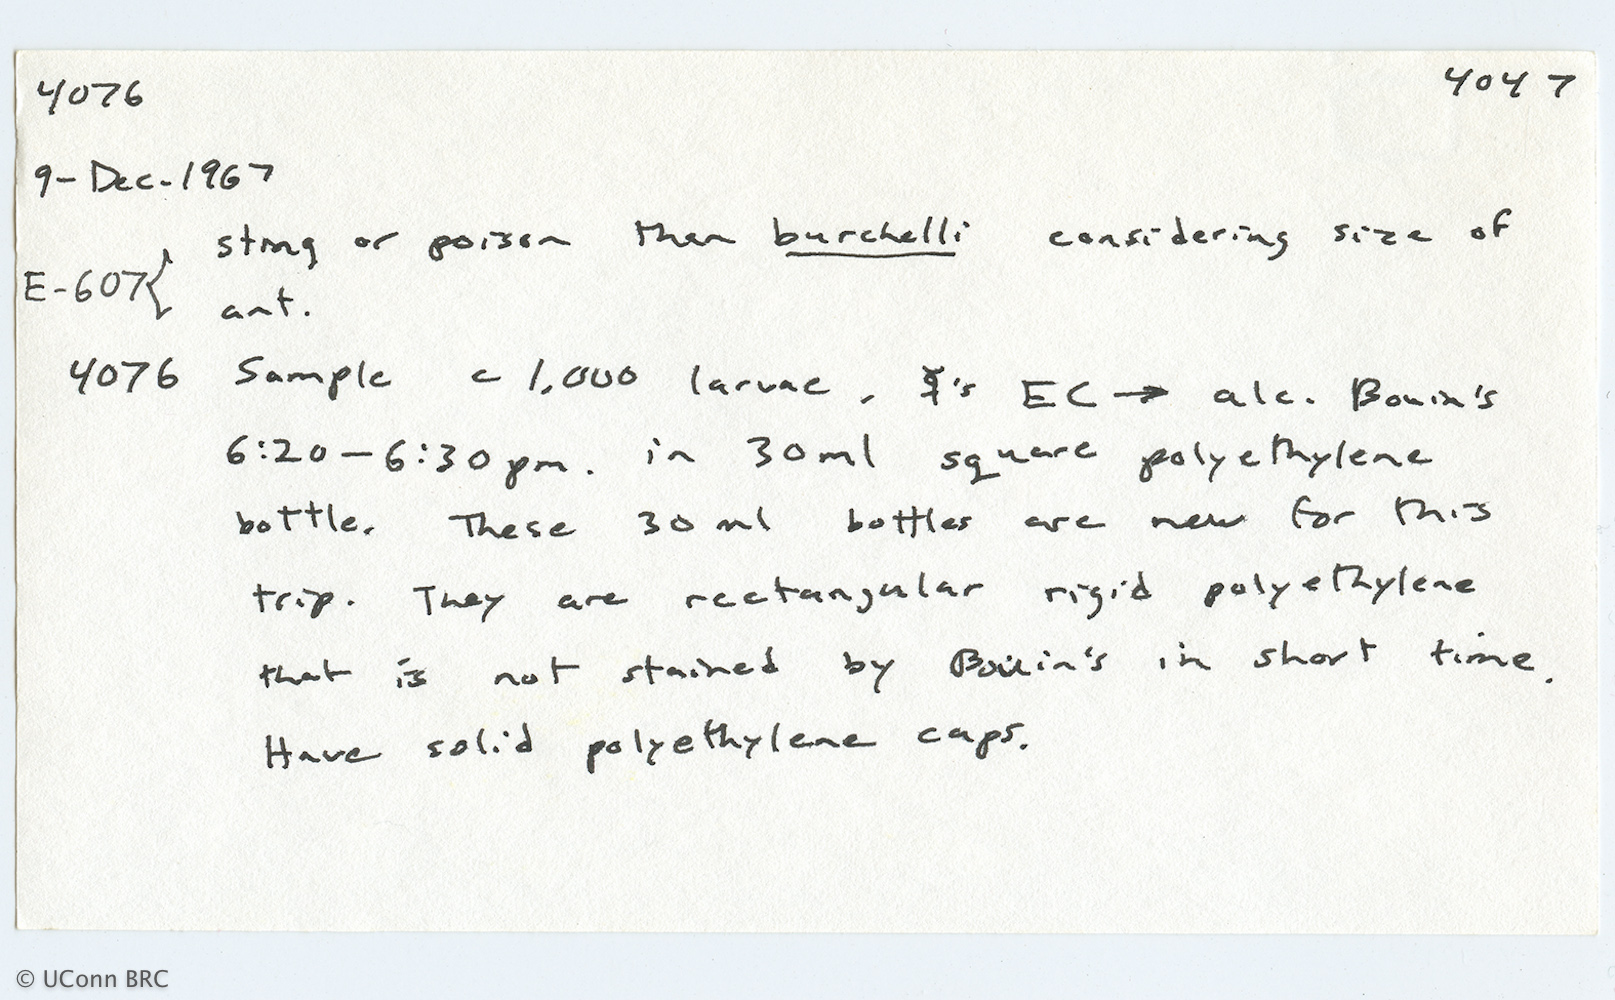 4076 4047
9-Dec-1967
sting or poison then burchelli considering size of
E-607{ ant.
4076 Sample c 1,000 larvae, ☿'s EC → alc. Bouin's
6:20-6:30 pm. in 30ml square polyethylene
bottle. These 30 ml bottles are new for this
trip. They are rectangular rigid polyethylene
that is not stained by Bouin's in short time.
Have solid polyethylene caps.
© UConn BRC